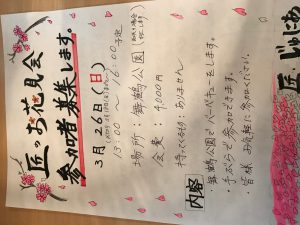 匠のお花見会
参加者募集します。
3月26日(日)
13:00〜16:00予定
場所:舞鶴公園
会費:4,000円
持ってくるもの:ありません
内容
・舞鶴公園でバーベキューをします。
・手ぶらで参加できます。
・皆様お気軽に参加ください。
匠